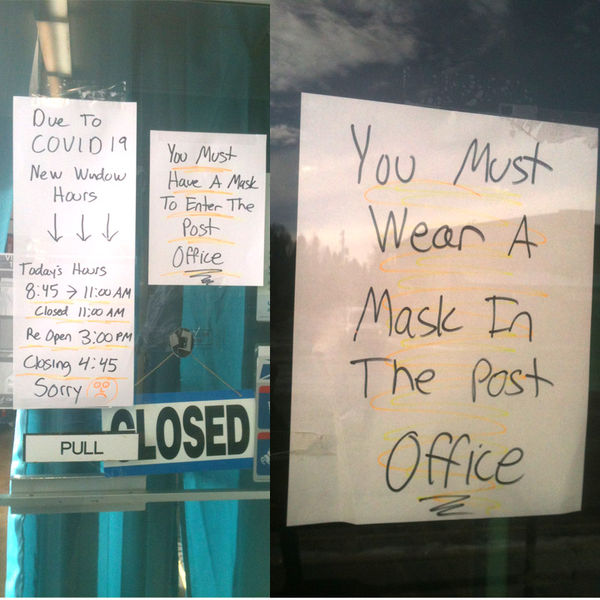 Due To
COVID 19
New Window
Hours
↓ ↓ ↓
Today's Hours
8:45 → 11:00 AM
Closed 11:00 AM
Re Open 3:00 PM
Closing 4:45
Sorry
You Must
Have A Mask
To Enter The
Post
Office
PULL
CLOSED
You Must
Wear A
Mask In
The Post
Office